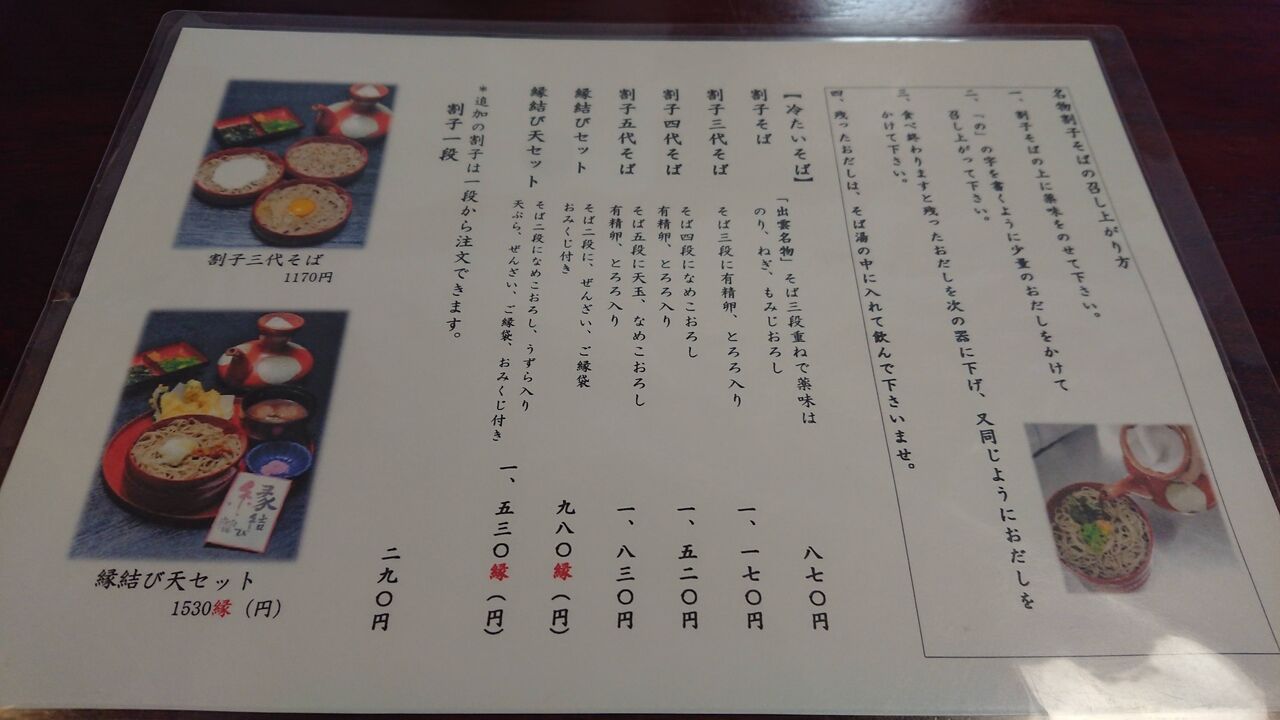 名物割子そばの召し上がり方
一、割子そばの上に薬味をのせて下さい。
二、「の」の字を書くように少量のおだしをかけて
召し上がって下さい。
三、食べ終わりますと残ったおだしを次の器に下げ、又同じようにおだしを
かけて下さい。
四、残ったおだしは、そば湯の中に入れて飲んで下さいませ。
【冷たいそば】
割子そば
「出雲名物」そば三段重ねで薬味は
のり、ねぎ、もみじおろし
八七〇円
割子三代そば
そば三段に有精卵、とろろ入り
一、一七〇円
割子四代そば
そば四段になめこおろし
有精卵、とろろ入り
一、五二〇円
割子五代そば
そば五段に天玉、なめこおろし
有精卵、とろろ入り
一、八三〇円
縁結びセット
そば二段に、ぜんざい、ご縁袋
おみくじ付き
九八〇縁(円)
縁結び天セット
そば二段になめこおろし、うずら入り
天ぷら、ぜんざい、ご縁袋、おみくじ付き
一、五三〇縁(円)
*追加の割子は一段から注文できます。
割子一段
二九〇円
割子三代そば
1170円
縁結び
縁結び天セット
1530縁(円)